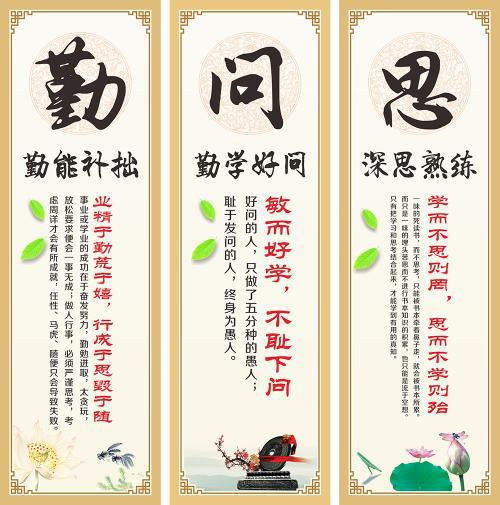 勤
勤能补拙
业精于勤荒于嬉，行成于思毁于随
事业或学业的成功在于奋发努力，勤勉进取，太贪玩，
放松要求便会一事无成；做人行事，必须严谨思考，考
虑周详才会有所成就，任性、马虎、随便只会导致失败。
问
勤学好问
敏而好学，不耻下问
好问的人，只做了五分种的愚人；
耻于发问的人，终身为愚人。
思
深思熟练
学而不思则罔，思而不学则殆
一味的死读书，而不思考，只能被书本牵着鼻子走，就会被书本所累。
而只是一味的埋头苦思而不进行书本知识的积累，也只能是流于空想。
只有把学习和思考结合起来，才能学到有用的真知。